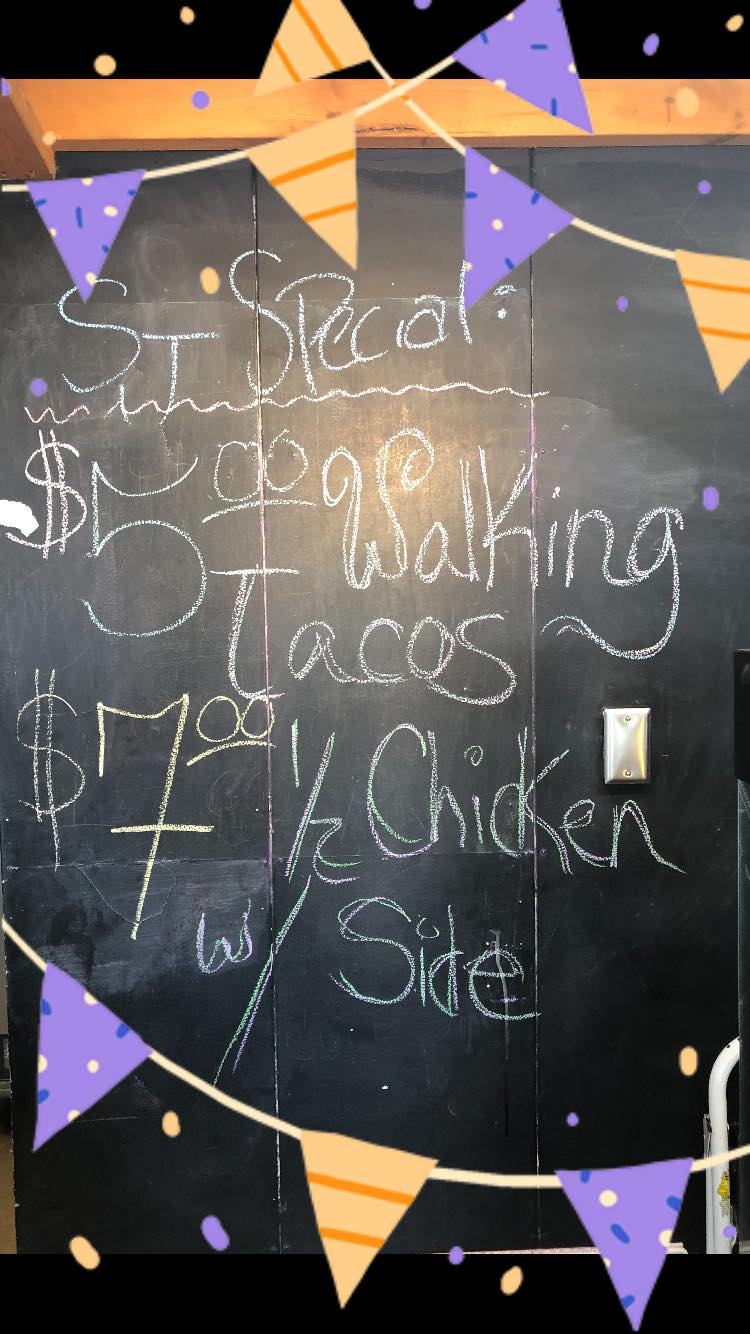 ST Special:
$5.00 Walking
Tacos
$7.00 1/2 Chicken
w/ Side